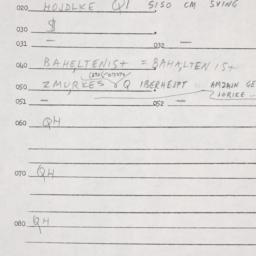 020 HOJDLKE Q! 5150 CM SVING
030 $
031 — 032 —
040 BAHELTENIST = BAHALTEN IST
050 ZMURKES Q IBERHEIPT
051 — 052 —
060 QH
070 QH
080 QH